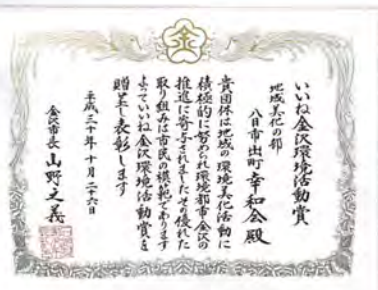 金
いいね金沢環境活動賞
地域美化の部
八日市出町幸和会殿
貴団体は地域の環境美化活動に
積極的に努められ環境都市金沢の
推進に寄与されましたその優れた
取り組みは市民の模範であります
よっていいね金沢環境活動賞を
贈呈し表彰します
平成三十年十月二十六日
金沢市長 山野之義